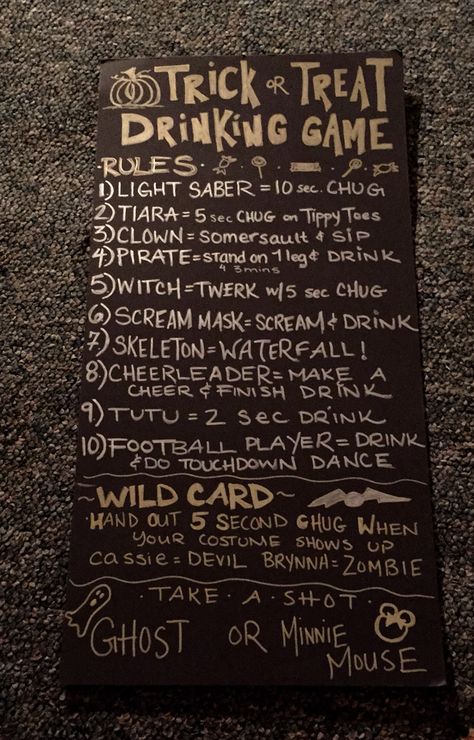 TRICK OR TREAT
DRINKING GAME
RULES
1) LIGHT SABER = 10 sec. CHUG
2) TIARA = 5 sec CHUG on Tippy Toes
3) CLOWN = Somersault & Sip
4) PIRATE = stand on 1 leg & DRINK
4 3 mins
5) WITCH = TWERK w/ 5 sec CHUG
6) SCREAM MASK = SCREAM & DRINK
7) SKELETON = WATERFALL!
8) CHEERLEADER = MAKE A
CHEER & FINISH DRINK
9) TUTU = 2 SEC DRINK
10) FOOTBALL PLAYER = DRINK
& DO TOUCHDOWN DANCE
~WILD CARD~
HAND OUT 5 SECOND CHUG WHEN
YOUR COSTUME SHOWS UP
Cassie = DEVIL BRYNNA = ZOMBIE
· TAKE · A · SHOT ·
GHOST OR MINNIE
MOUSE